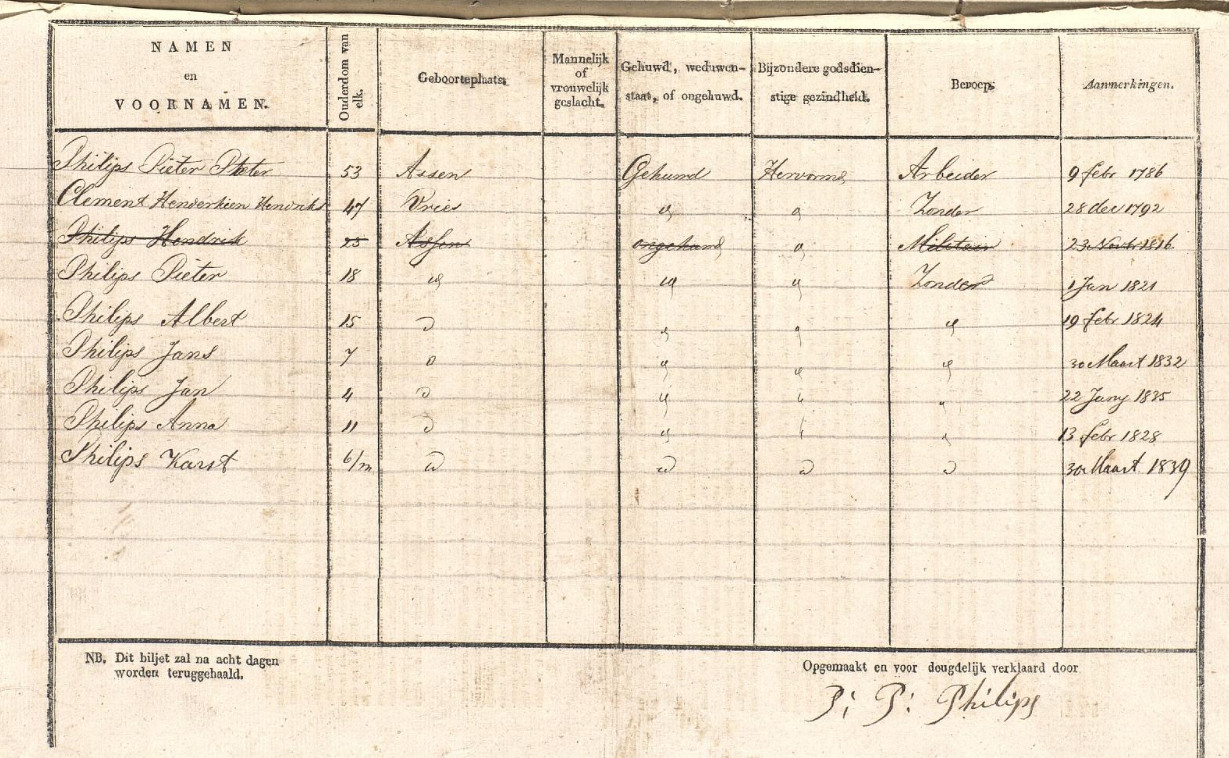 NAMEN en VOORNAMEN. Ouderdom van elk. Geboorteplaats. Mannelijk of vrouwelijk geslacht. Gehuwd, weduwen-staat, of ongehuwd. Bijzondere godsdien-stige gezindheid. Beroep. Aanmerkingen.
Philips Pieter Pieter 53 Assen Gehuwd Hervormd Arbeider 9 febr 1786
Clement Henderkien Hendriks 47 Vries " " Zonder 28 dec 1792
Philips Hendrik Assen ongehuwd " Militair 1816
Philips Pieter 18 " " " Zonder 1 Jan 1821
Philips Albert 15 " " " " 19 febr 1824
Philips Jans 7 " " " " 30 Maart 1832
Philips Jan 4 " " " " 22 Juny 1835
Philips Anna 11 " " " " 13 febr 1828
Philips Karst 6/m " " " " 30 Maart 1839
NB. Dit biljet zal na acht dagen
worden teruggehaald.
Opgemaakt en voor deugdelijk verklaard door
P: P: Philips